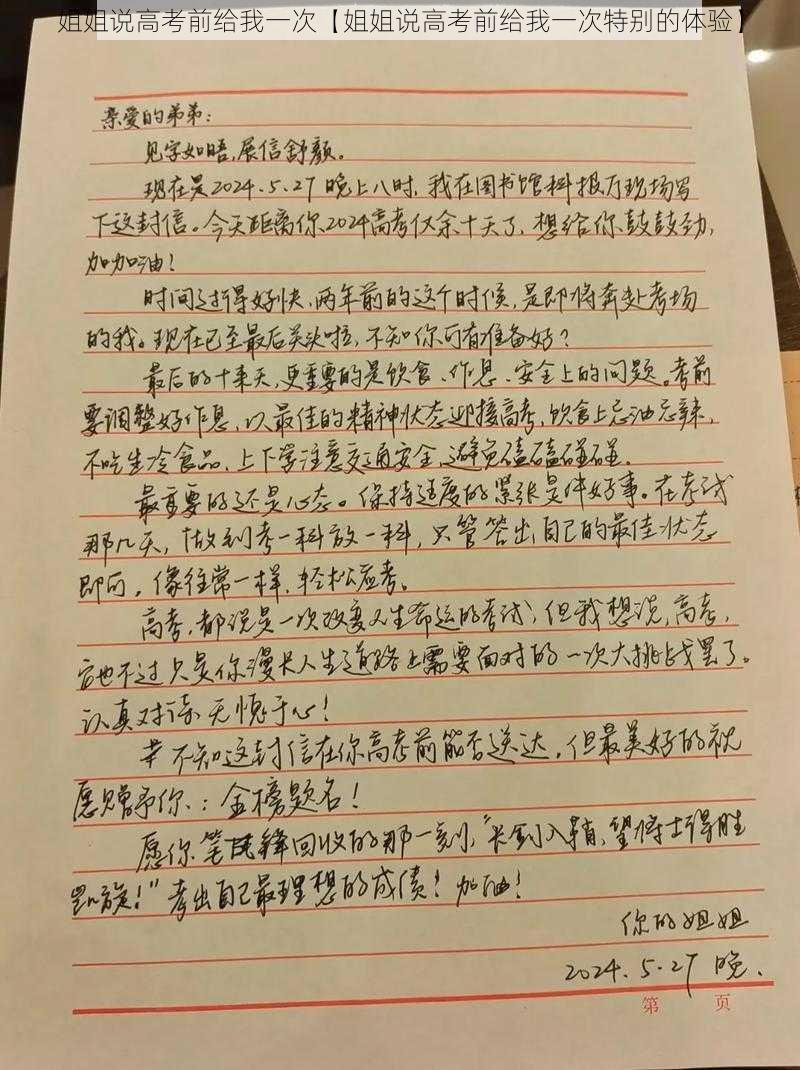 姐姐说高考前给我一次【姐姐说高考前给我一次特别的体验】
亲爱的弟弟：
见字如晤，展信舒颜。
现在是2024.5.27晚上八时，我在图书馆科报厅现场写
下这封信。今天距离你2024高考仅余十天了，想给你鼓鼓劲，
加加油！
时间过得好快，两年前的这个时候，是即将奔赴考场
的我。现在已至最后关头啦，不知你可有准备好？
最后的十来天，更重要的是饮食、作息、安全上的问题。考前
要调整好作息，以最佳的精神状态迎接高考，饮食上忌油忌辣，
不吃生冷食品，上下学注意交通安全，避免磕磕碰碰。
最重要的还是心态。保持适度的紧张是件好事。在考试
那几天，做到考一科放一科，只管答出自己的最佳状态
即可，像往常一样，轻松应考。
高考，都说是一次改变人生命运的考试，但我想说，高考，
它也不过只是你漫长人生道路上需要面对的一次大挑战罢了。
认真对待，无愧于心！
不知这封信在你高考前能否送达，但最美好的祝
愿赠予你：金榜题名！
愿你笔锋回收的那一刻，“长剑入鞘，望将士得胜
凯旋！”考出自己最理想的成绩！加油！
你的姐姐
2024.5.27晚.
第 页